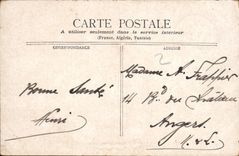 CARTE POSTALE
A utiliser seulement dans le service intérieur
(France, Algérie, Tunisie)
CORRESPONDANCE
ADRESSE
Bonne Santé
Henri
2
Madame A. Frappier
14 Bd des
Angers
M. & L.